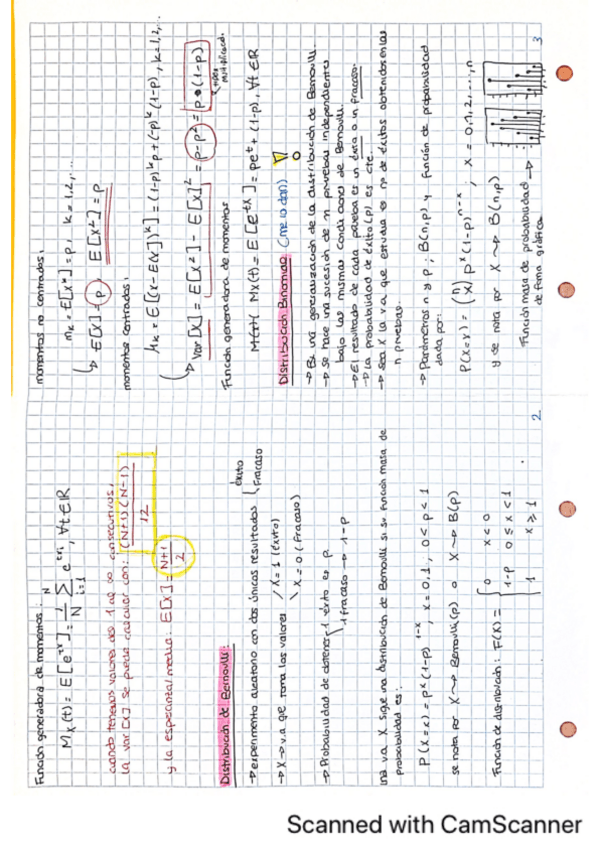 Función generadora de momentos:
Mx(t) = E[e^tx] = 1/N N∑i=1 e^txi, ∀t∈R
cuando tenemos valores del 1 al 30 consecutivos,
la var[X] se puede calcular con: (N+1)(N-1)/12
y la esperanza/media: E[X] = N+1/2
Distribución de Bernoulli:
→ experimento aleatorio con dos únicos resultados éxito
fracaso
→ X → v.a que toma los valores X=1 (éxito)
X=0 (Fracaso)
→ Probabilidad de obtener 1 éxito es p
1 fracaso → 1-p
una va X sigue una distribución de Bernoulli si su función masa de
probabilidad es:
P(X=x) = p^x (1-p)^1-x, x=0,1, 0<p<1
se nota por X ~> Bernoulli(p) o X ~> B(p)
Función de distribución: F(x) = { 0 x<0
1-p 0≤x<1
1 x≥1
2
momentos no centrados,
mk = E[X^k] = p, k=1,2,...
↳ E[X] = p, E[X^2] = p
momentos centrados,
μk = E[(X-E(X))^k] = (1-p)^k p + (-p)^k (1-p), k=1,2,...
↳ Var[X] = E[X^2] - E[X]^2 = p-p^2 = p•(1-p)
Función generadora de momentos
Mx(t) = E[e^tX] = pe^t + (1-p), ∀t∈R
Distribución Binomial (me lo dan)
→ Es una generalización de la distribución de Bernoulli.
→ se hace una sucesión de n pruebas independientes
bajo las mismas condiciones de Bernoulli.
→ El resultado de cada prueba es un éxito o un fracaso.
→ La probabilidad de éxito (p) es cte.
→ Sea X la va que estudia el nº de éxitos obtenidos en las
n pruebas.
→ Parámetros n y p; B(n,p) y función de probabilidad
dada por:
P(X=x) = (n x) p^x (1-p)^n-x; x=0,1,2,...,n
y se nota por X ~> B(n,p)
Función masa de probabilidad →
de forma gráfica
3
Scanned with CamScanner